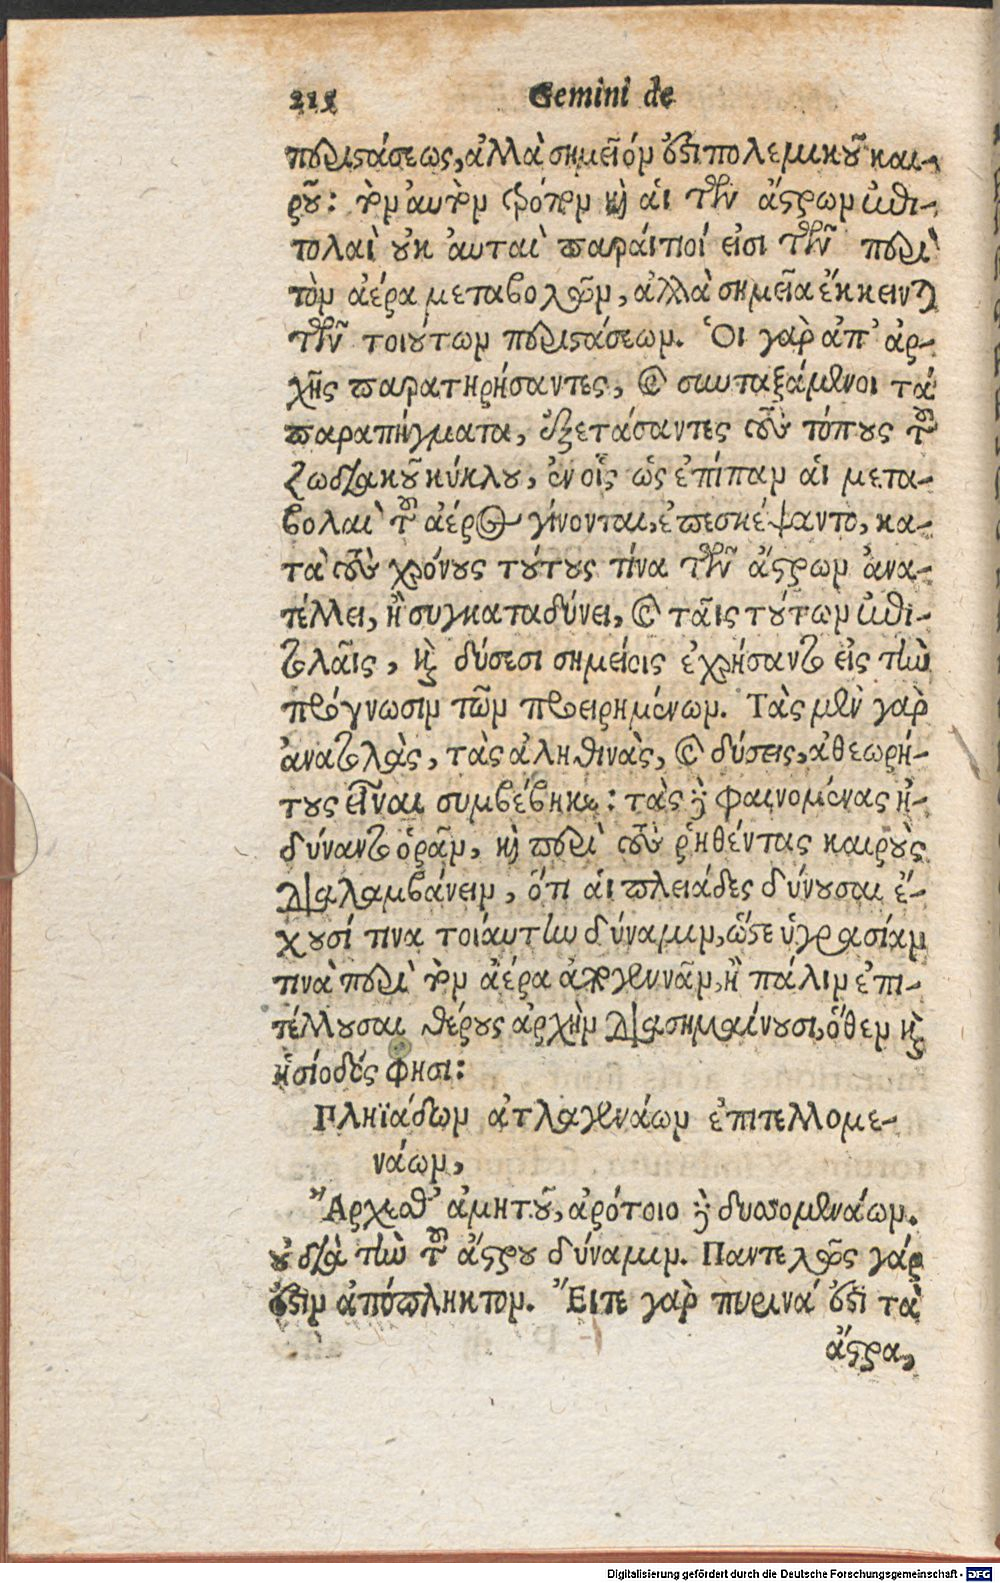 215 Gemini de
περιστάσεως, ἀλλὰ σημεῖόν ἐστι πολεμικοῦ και-
ροῦ: τὸν αὐτὸν τρόπον καὶ αἱ τῶν ἄστρων ἐπι-
τολαὶ οὐκ αὐταὶ παραίτιοί εἰσι τῶν περὶ
τὸν ἀέρα μεταβολῶν, ἀλλὰ σημεῖα ἔκκεινται
τῶν τοιούτων περιστάσεων. Ὁι γὰρ ἀπ' ἀρ-
χῆς παρατηρήσαντες, καὶ συνταξάμενοι τὰ
παραπήγματα, ἐξετάσαντες τοὺς τόπους τοῦ
ζωδιακοῦ κύκλου, ἐν οἷς ὡς ἐπίπαν αἱ μετα-
βολαὶ τοῦ ἀέρος γίνονται, ἐπεσκέψαντο, κα-
τὰ τοὺς χρόνους τούτους τίνα τῶν ἄστρων ἀνα-
τέλλει, ἢ συγκαταδύνει, καὶ ταῖς τούτων ἐπι-
τολαῖς, καὶ δύσεσι σημείοις ἐχρήσαντο εἰς τὴν
πρόγνωσιν τῶν προειρημένων. Τὰς μὲν γὰρ
ἀνατολὰς, τὰς ἀληθινὰς, καὶ δύσεις, ἀθεωρή-
τους εἶναι συμβέβηκε: τὰς δὲ φαινομένας ἠ-
δύναντο ὁρᾶν, καὶ περὶ τοὺς ῥηθέντας καιροὺς
διαλαμβάνειν, ὅτι αἱ πλειάδες δύνουσαι ἔ-
χουσί τινα τοιαύτην δύναμιν, ὥστε ὑγρασίαν
τινὰ περὶ τὸν ἀέρα ἀπογεννᾶν, ἢ πάλιν ἐπι-
τέλλουσαι θέρους ἀρχὴν διασημαίνουσι, ὅθεν καὶ
ἡσίοδός φησι:
Πληϊάδων ἀτλαγενάων ἐπιτελλομε-
νάων,
Ἄρχεσθ' ἀμητοῦ, ἀρότοιο δὲ δυσομενάων.
οὐ διὰ τὴν τοῦ ἄστρου δύναμιν. Παντελῶς γάρ
ἐστιν ἀπόπληκτον. Ἔιτε γὰρ πυρινά ἐστι τὰ
ἄστρα,
Digitalisierung gefördert durch die Deutsche Forschungsgemeinschaft - DFG